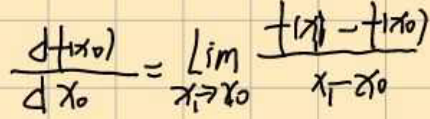 df(x₀)/dx₀ = Lim x₁→x₀ f(x) - f(x₀)/x₁-x₀